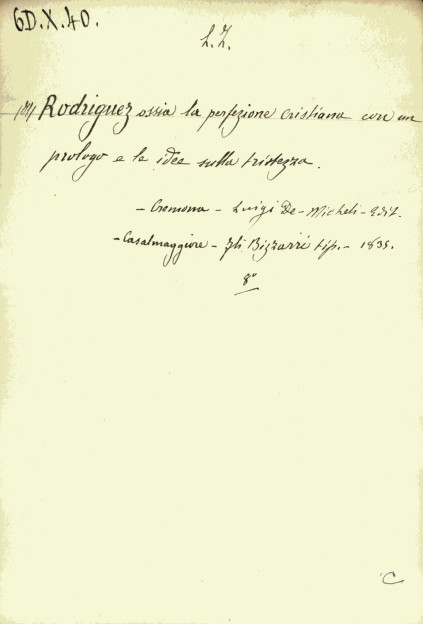 6D.X.40.
L.Z.
Rodriguez ossia la perfezione cristiana con un
prologo e le idee sulla tristezza.
- Cremona - Luigi De-Micheli - Edit.
- Casalmaggiore - Fli Bizzarri tip. - 1835.
8°
C